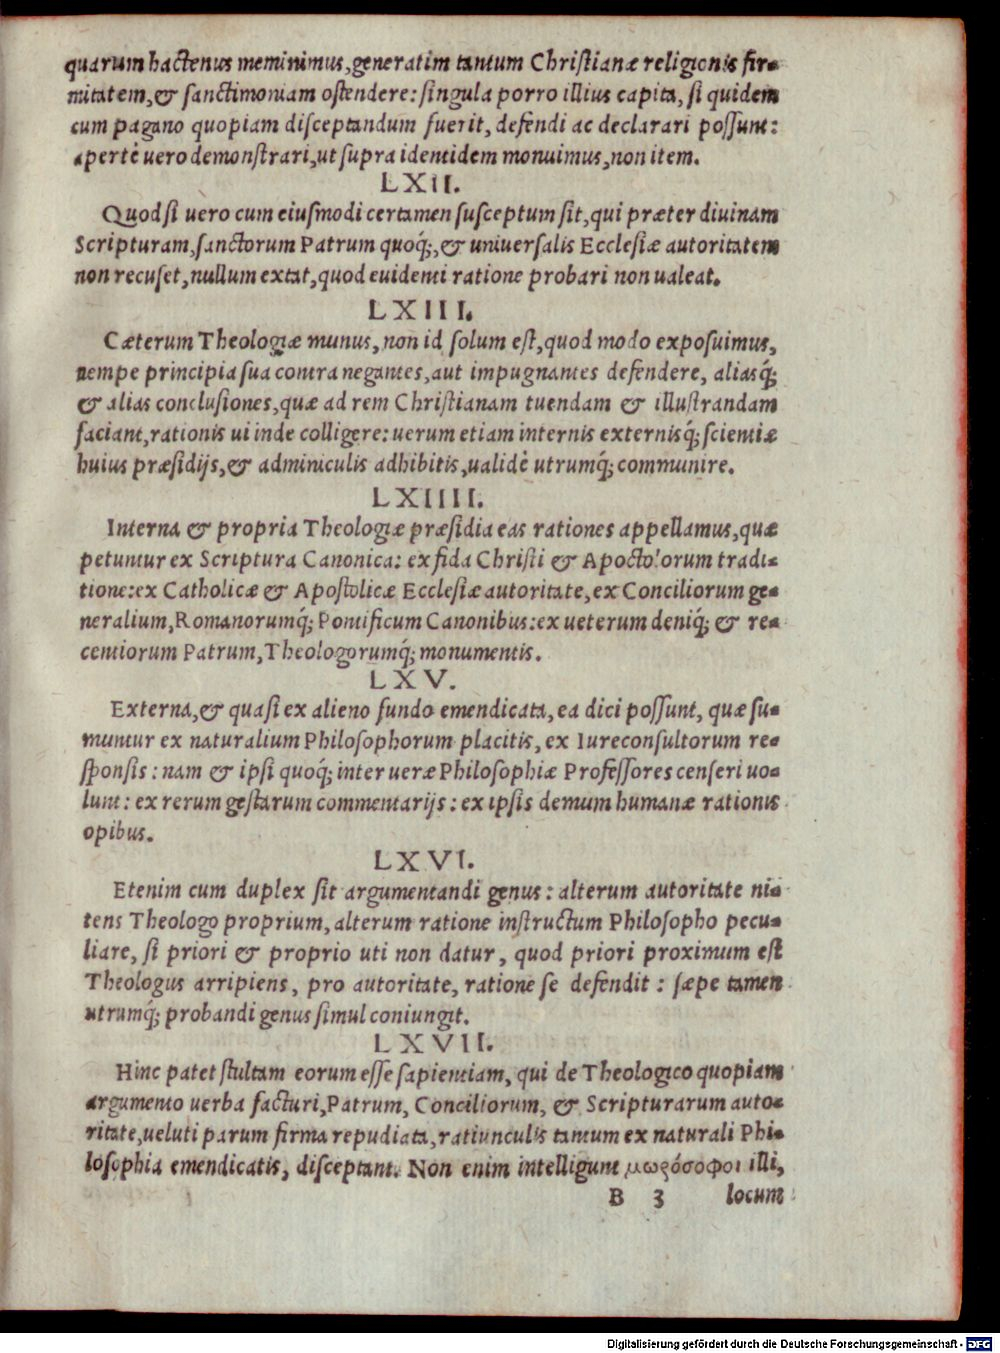 quarum hactenus meminimus, generatim tantum Christianæ religionis fir-
mitatem, & sanctimoniam ostendere: singula porro illius capita, si quidem
cum pagano quopiam disceptandum fuerit, defendi ac declarari possunt:
apertè uero demonstrari, ut supra identidem monuimus, non item.
LXII.
Quod si uero cum eiusmodi certamen susceptum sit, qui præter diuinam
Scripturam, sanctorum Patrum quoq́;, & uniuersalis Ecclesiæ autoritatem
non recuset, nullum extat, quod euidenti ratione probari non ualeat.
LXIII.
Cæterum Theologiæ munus, non id solum est, quod modo exposuimus,
nempe principia sua contra negantes, aut impugnantes defendere, aliasq́;
& alias conclusiones, quæ ad rem Christianam tuendam & illustrandam
faciant, rationis ui inde colligere: uerum etiam internis externisq́; scientiæ
huius præsidijs, & adminiculis adhibitis, ualidè utrumq́; communire.
LXIIII.
Interna & propria Theologiæ præsidia eas rationes appellamus, quæ
petuntur ex Scriptura Canonica: ex fida Christi & Apoctolorum tradi-
tione: ex Catholicæ & Apostolicæ Ecclesiæ autoritate, ex Conciliorum ge-
neralium, Romanorumq́; Pontificum Canonibus: ex ueterum deniq́; & re-
centiorum Patrum, Theologorumq́; monumentis.
LXV.
Externa, & quasi ex alieno fundo emendicata, ea dici possunt, quæ su-
muntur ex naturalium Philosophorum placitis, ex Iureconsultorum re-
sponsis: nam & ipsi quoq́; inter ueræ Philosophiæ Professores censeri uo-
lunt: ex rerum gestarum commentarijs: ex ipsis demum humanæ rationis
opibus.
LXVI.
Etenim cum duplex sit argumentandi genus: alterum autoritate ni-
tens Theologo proprium, alterum ratione instructum Philosopho pecu-
liare, si priori & proprio uti non datur, quod priori proximum est
Theologus arripiens, pro autoritate, ratione se defendit: sæpe tamen
utrumq́; probandi genus simul coniungit.
LXVII.
Hinc patet stultam eorum esse sapientiam, qui de Theologico quopiam
argumento uerba facturi, Patrum, Conciliorum, & Scripturarum auto-
ritate, ueluti parum firma repudiata, ratiunculis tantum ex naturali Phi-
losophia emendicatis, disceptant. Non enim intelligunt μωρόσοφοι illi,
B 3 locum
Digitalisierung gefördert durch die Deutsche Forschungsgemeinschaft - DFG